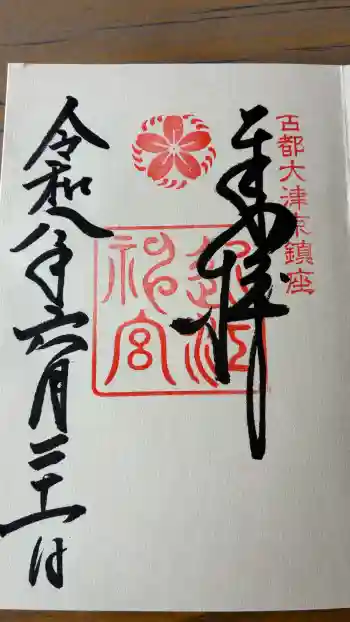 古都大津京鎮座
奉拝
近江
神宮
令和八年六月二十一日